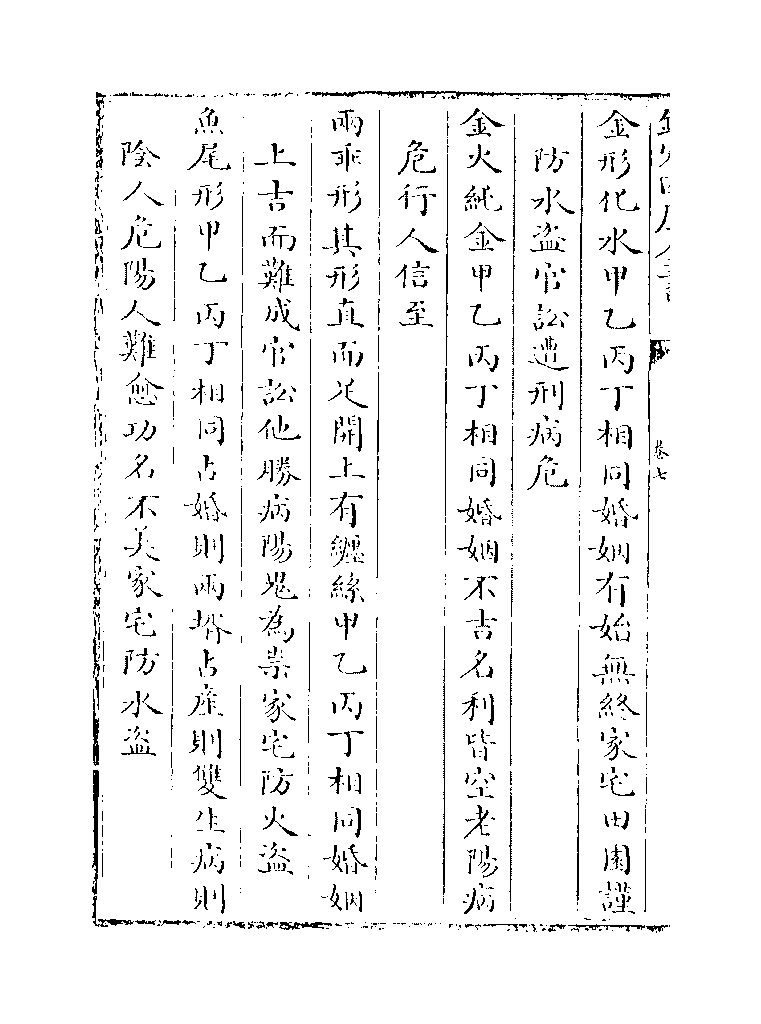 卷七
金形化水甲乙丙丁相同婚姻有始無終家宅田園謹
防水盜官訟遭刑病危
金火純金甲乙丙丁相同婚姻不吉名利皆空老陽病
危行人信至
兩乖形其形直而足開上有纏絲甲乙丙丁相同婚姻
上吉而難成官訟他勝病陽鬼為祟家宅防火盜
魚尾形甲乙丙丁相同占婚則兩壻占產則雙生病則
陰人危陽人難愈功名不美家宅防水盜